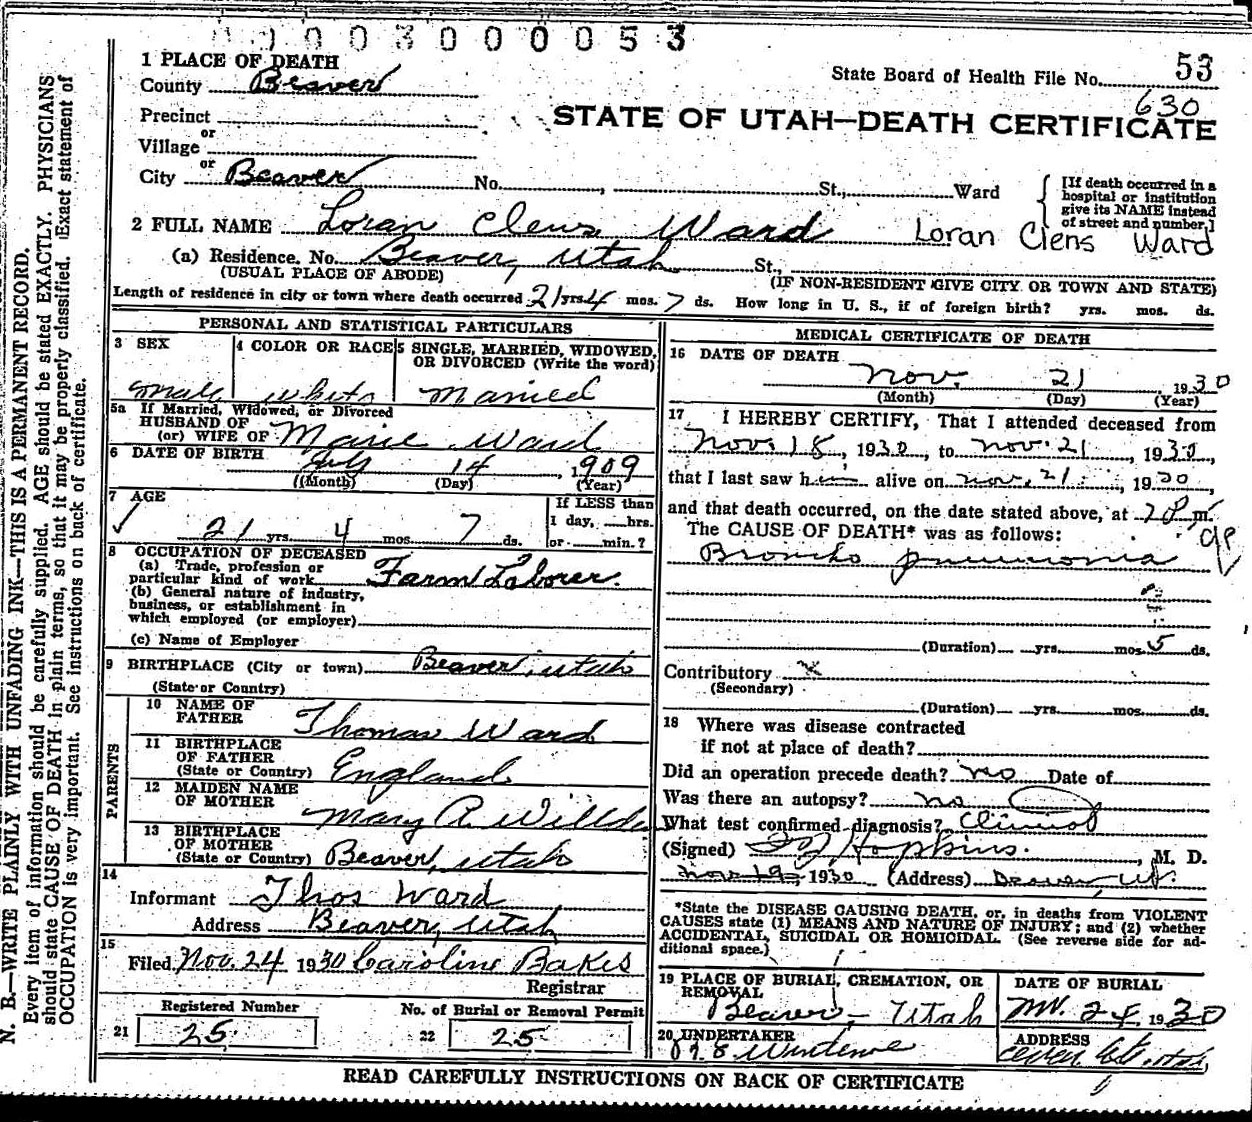 0 0 0 3 0 0 0 0 5 3
1 PLACE OF DEATH
County Beaver
State Board of Health File No. 53
630
Precinct
or
Village
or
City Beaver No. , St., Ward
STATE OF UTAH—DEATH CERTIFICATE
[If death occurred in a
hospital or institution
give its NAME instead
of street and number.]
2 FULL NAME Loran Clens Ward Loran Clens Ward
(a) Residence. No. Beaver, Utah St.,
(USUAL PLACE OF ABODE) (IF NON-RESIDENT GIVE CITY OR TOWN AND STATE)
Length of residence in city or town where death occurred 21 yrs. 4 mos. 7 ds. How long in U. S., if of foreign birth? yrs. mos. ds.
PERSONAL AND STATISTICAL PARTICULARS
3 SEX 4 COLOR OR RACE 5 SINGLE, MARRIED, WIDOWED,
OR DIVORCED (Write the word)
male white Married
5a If Married, Widowed, or Divorced
HUSBAND OF
(or) WIFE OF Marie Ward
6 DATE OF BIRTH July 14, 1909
(Month) (Day) (Year)
7 AGE If LESS than
1 day, hrs.
21 yrs. 4 mos. 7 ds. or min.?
8 OCCUPATION OF DECEASED
(a) Trade, profession or
particular kind of work Farm Laborer.
(b) General nature of industry,
business, or establishment in
which employed (or employer)
(c) Name of Employer
9 BIRTHPLACE (City or town) Beaver, Utah
(State or Country)
PARENTS
10 NAME OF
FATHER Thomas Ward
11 BIRTHPLACE
OF FATHER
(State or Country) England
12 MAIDEN NAME
OF MOTHER Mary R.
13 BIRTHPLACE
OF MOTHER
(State or Country) Beaver, Utah
14
Informant Thos Ward
Address Beaver, Utah
15
Filed Nov. 24 1930 Caroline Bakes
Registrar
Registered Number No. of Burial or Removal Permit
21 25 22 25
MEDICAL CERTIFICATE OF DEATH
16 DATE OF DEATH
Nov. 21 1930
(Month) (Day) (Year)
17 I HEREBY CERTIFY, That I attended deceased from
Nov. 18, 1930, to Nov. 21, 1930,
that I last saw him alive on Nov. 21, 1930,
and that death occurred, on the date stated above, at m.
The CAUSE OF DEATH* was as follows:
Broncho pneumonia
(Duration) yrs. mos. 5 ds.
Contributory x
(Secondary)
(Duration) yrs. mos. ds.
18 Where was disease contracted
if not at place of death?
Did an operation precede death? no Date of
Was there an autopsy? no
What test confirmed diagnosis? Clinical
(Signed) Hopkins. , M. D.
1930 (Address) Beaver, Ut.
*State the DISEASE CAUSING DEATH, or, in deaths from VIOLENT
CAUSES state (1) MEANS AND NATURE OF INJURY; and (2) whether
ACCIDENTAL, SUICIDAL OR HOMICIDAL. (See reverse side for ad-
ditional space.)
19 PLACE OF BURIAL, CREMATION, OR
REMOVAL
Beaver, Utah
DATE OF BURIAL
Nov. 24 1930
20 UNDERTAKER
ADDRESS
READ CAREFULLY INSTRUCTIONS ON BACK OF CERTIFICATE
N. B.—WRITE PLAINLY WITH UNFADING INK—THIS IS A PERMANENT RECORD.
Every item of information should be carefully supplied. AGE should be stated EXACTLY. PHYSICIANS
should state CAUSE OF DEATH in plain terms, so that it may be properly classified. Exact statement of
OCCUPATION is very important. See instructions on back of certificate.